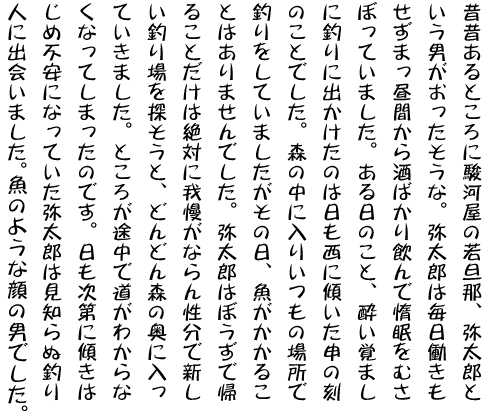 昔昔あるところに駿河屋の若旦那、弥太郎と
いう男がおったそうな。弥太郎は毎日働きも
せずまっ昼間から酒ばかり飲んで惰眠をむさ
ぼっていました。ある日のこと、酔い覚まし
に釣りに出かけたのは日も西に傾いた申の刻
のことでした。森の中に入りいつもの場所で
釣りをしていましたがその日、魚がかかるこ
とはありませんでした。弥太郎はぼうずで帰
ることだけは絶対に我慢がならん性分で新し
い釣り場を探そうと、どんどん森の奥に入っ
ていきました。ところが途中で道がわからな
くなってしまったのです。日も次第に傾きは
じめ不安になっていた弥太郎は見知らぬ釣り
人に出会いました。魚のような顔の男でした。